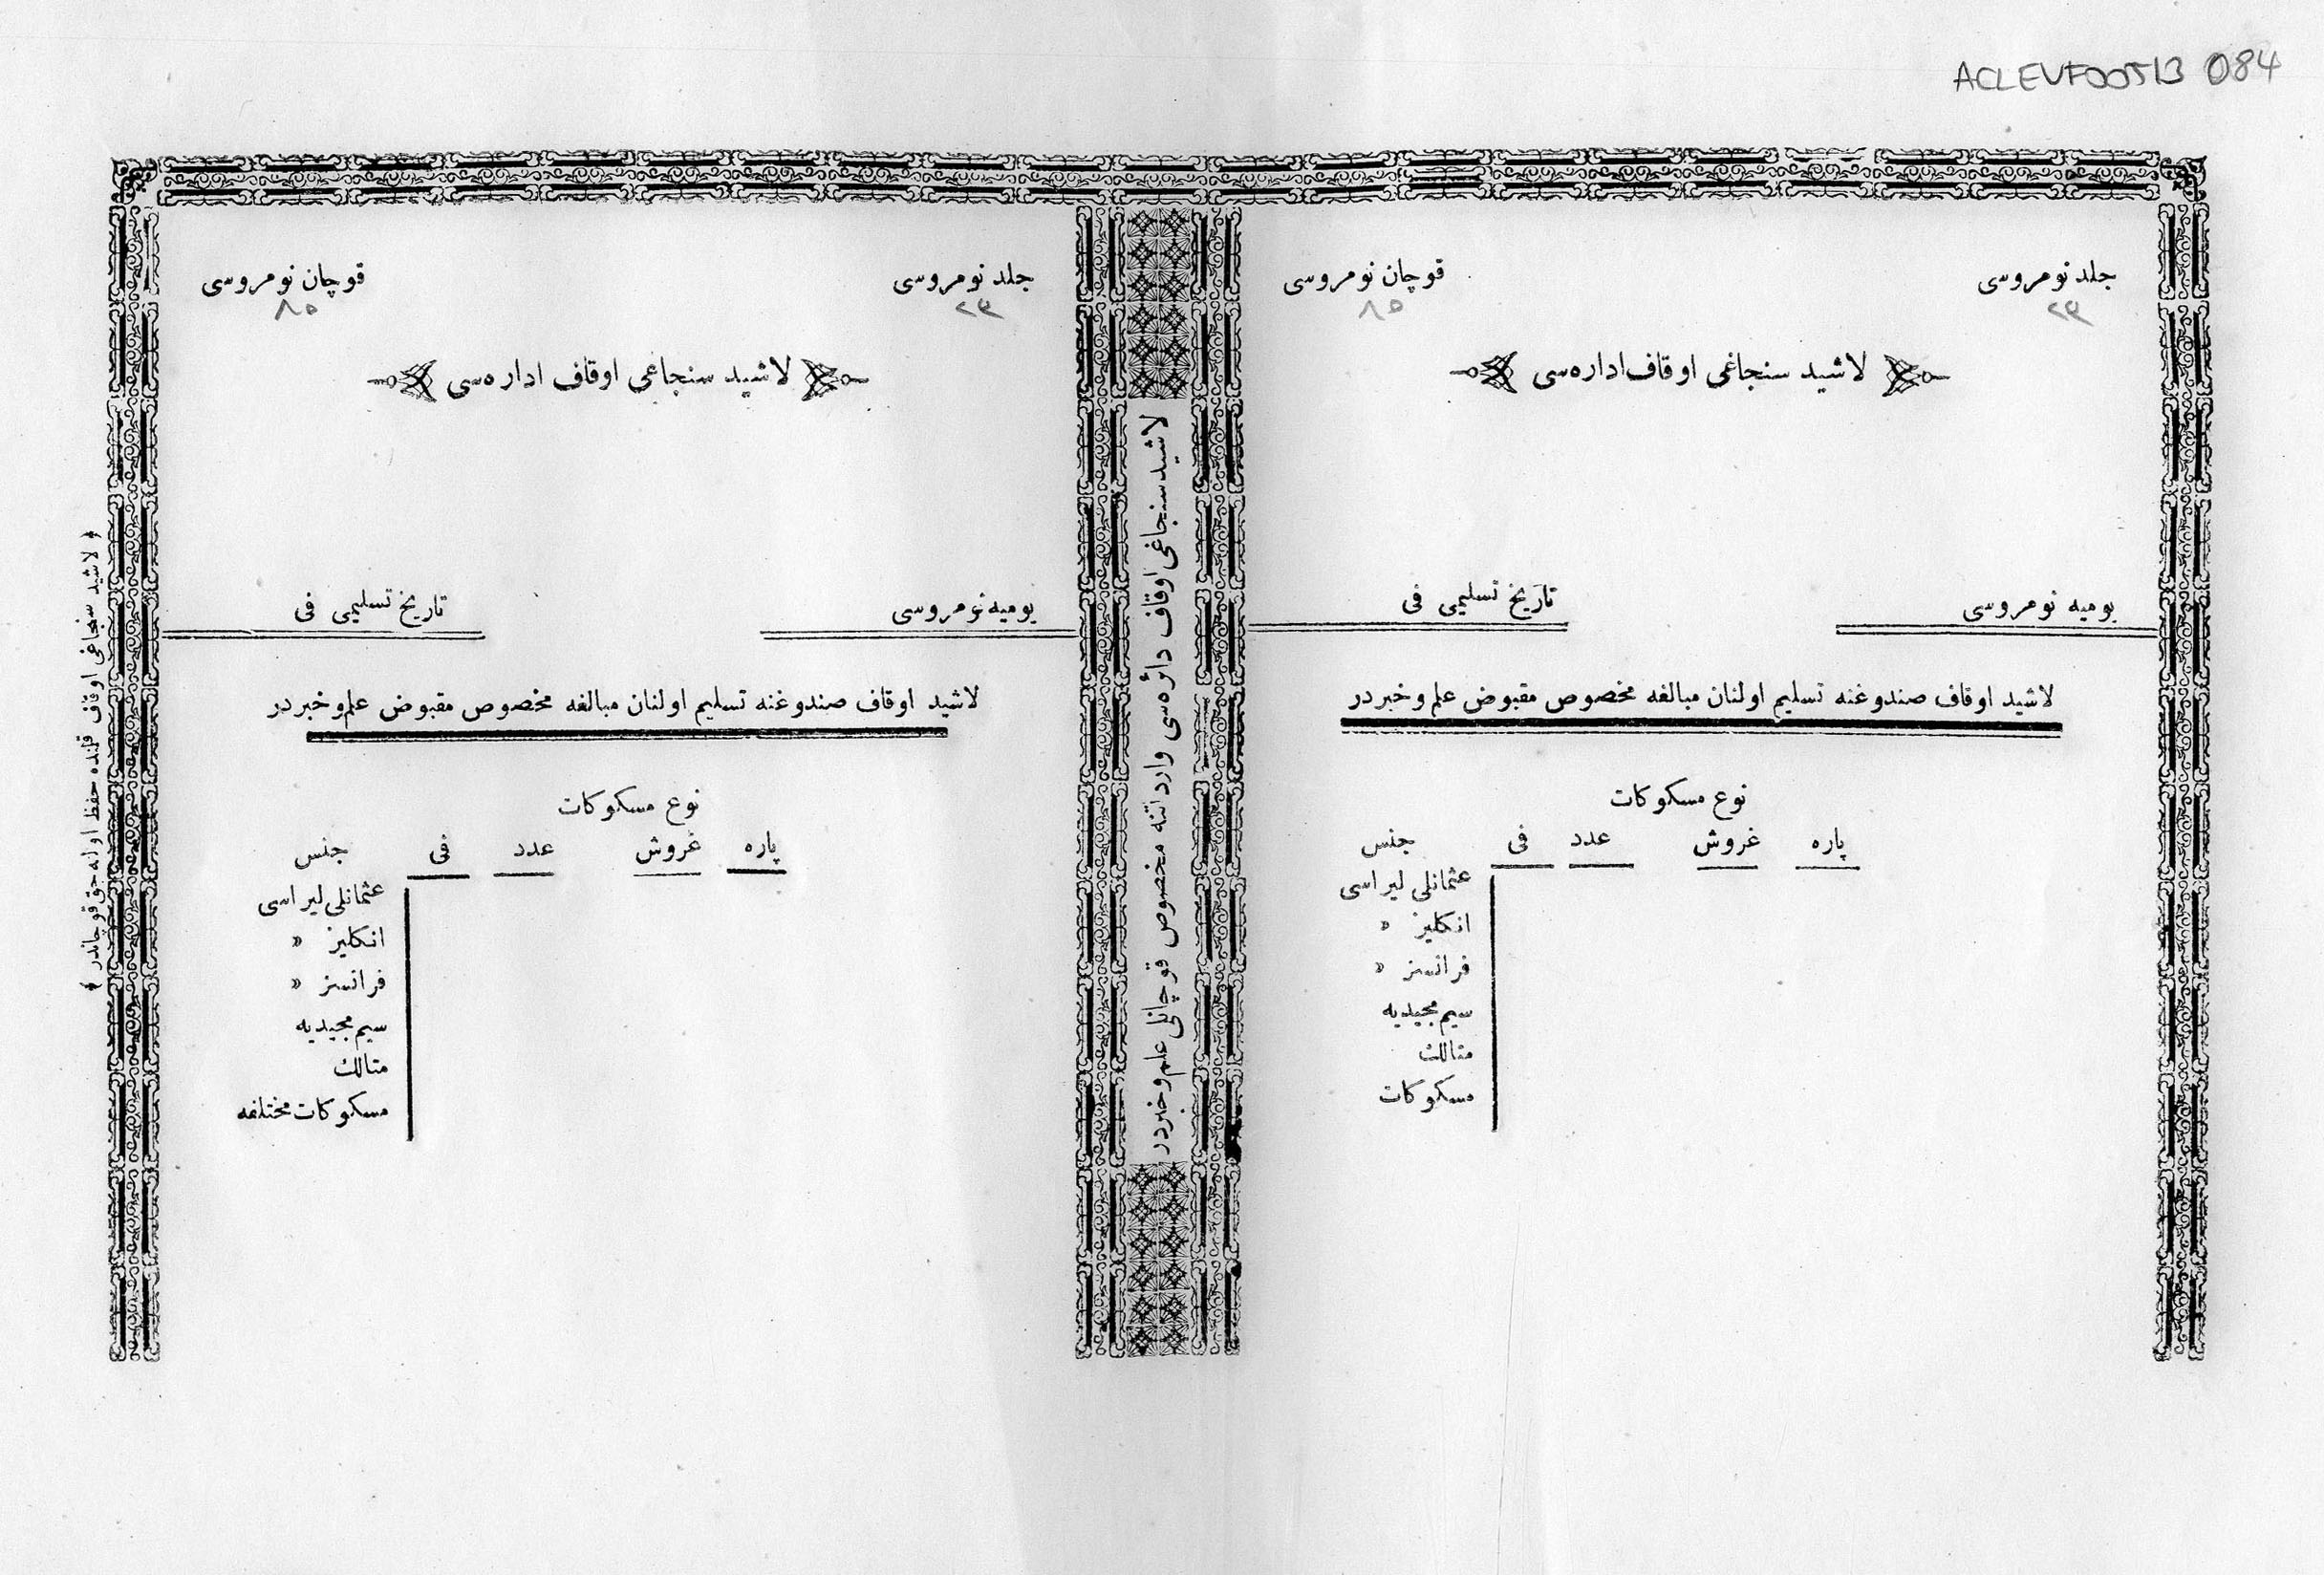 ACLEVF00513 084
جلد نومروسی
٢٣
قوچان نومروسی
٨٥
لاشید سنجاغی اوقاف اداره‌سی
یومیه نومروسی
تاریخ تسلیمی فی
لاشید اوقاف صندوغنه تسلیم اولنان مبالغه مخصوص مقبوض علم وخبردر
نوع مسکوکات
پاره غروش عدد فی جنس
عثمانلی لیراسی
انکلیز »
فرانسز »
سیم مجیدیه
متالك
مسکوکات
لاشید سنجاغی اوقاف دائره‌سی وارداتنه مخصوص قوچانلی علم وخبردر
جلد نومروسی
٢٣
قوچان نومروسی
٨٥
لاشید سنجاغی اوقاف اداره‌سی
یومیه نومروسی
تاریخ تسلیمی فی
لاشید اوقاف صندوغنه تسلیم اولنان مبالغه مخصوص مقبوض علم وخبردر
نوع مسکوکات
پاره غروش عدد فی جنس
عثمانلی لیراسی
انکلیز »
فرانسز »
سیم مجیدیه
متالك
مسکوکات مختلفه
﴿ لاشید سنجاغی اوقاف قلمنده حفظ اوله‌جق قوچاندر ﴾